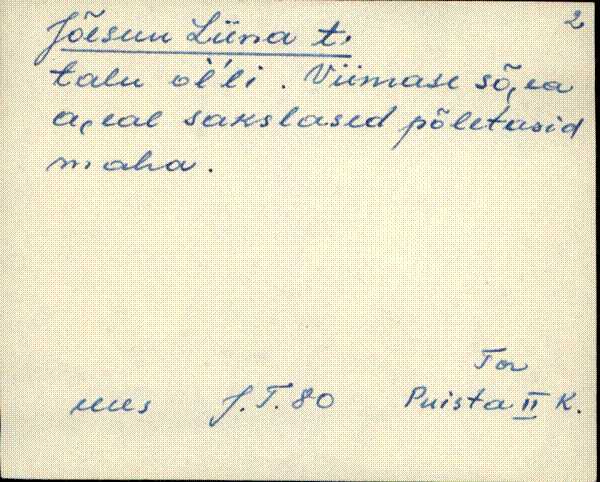 2
Jõesuu Liina t.
talu ol'li. Viimase sõja
ajal sakslased põletasid
maha.
Tor
uus J.T.80 Puista II K.